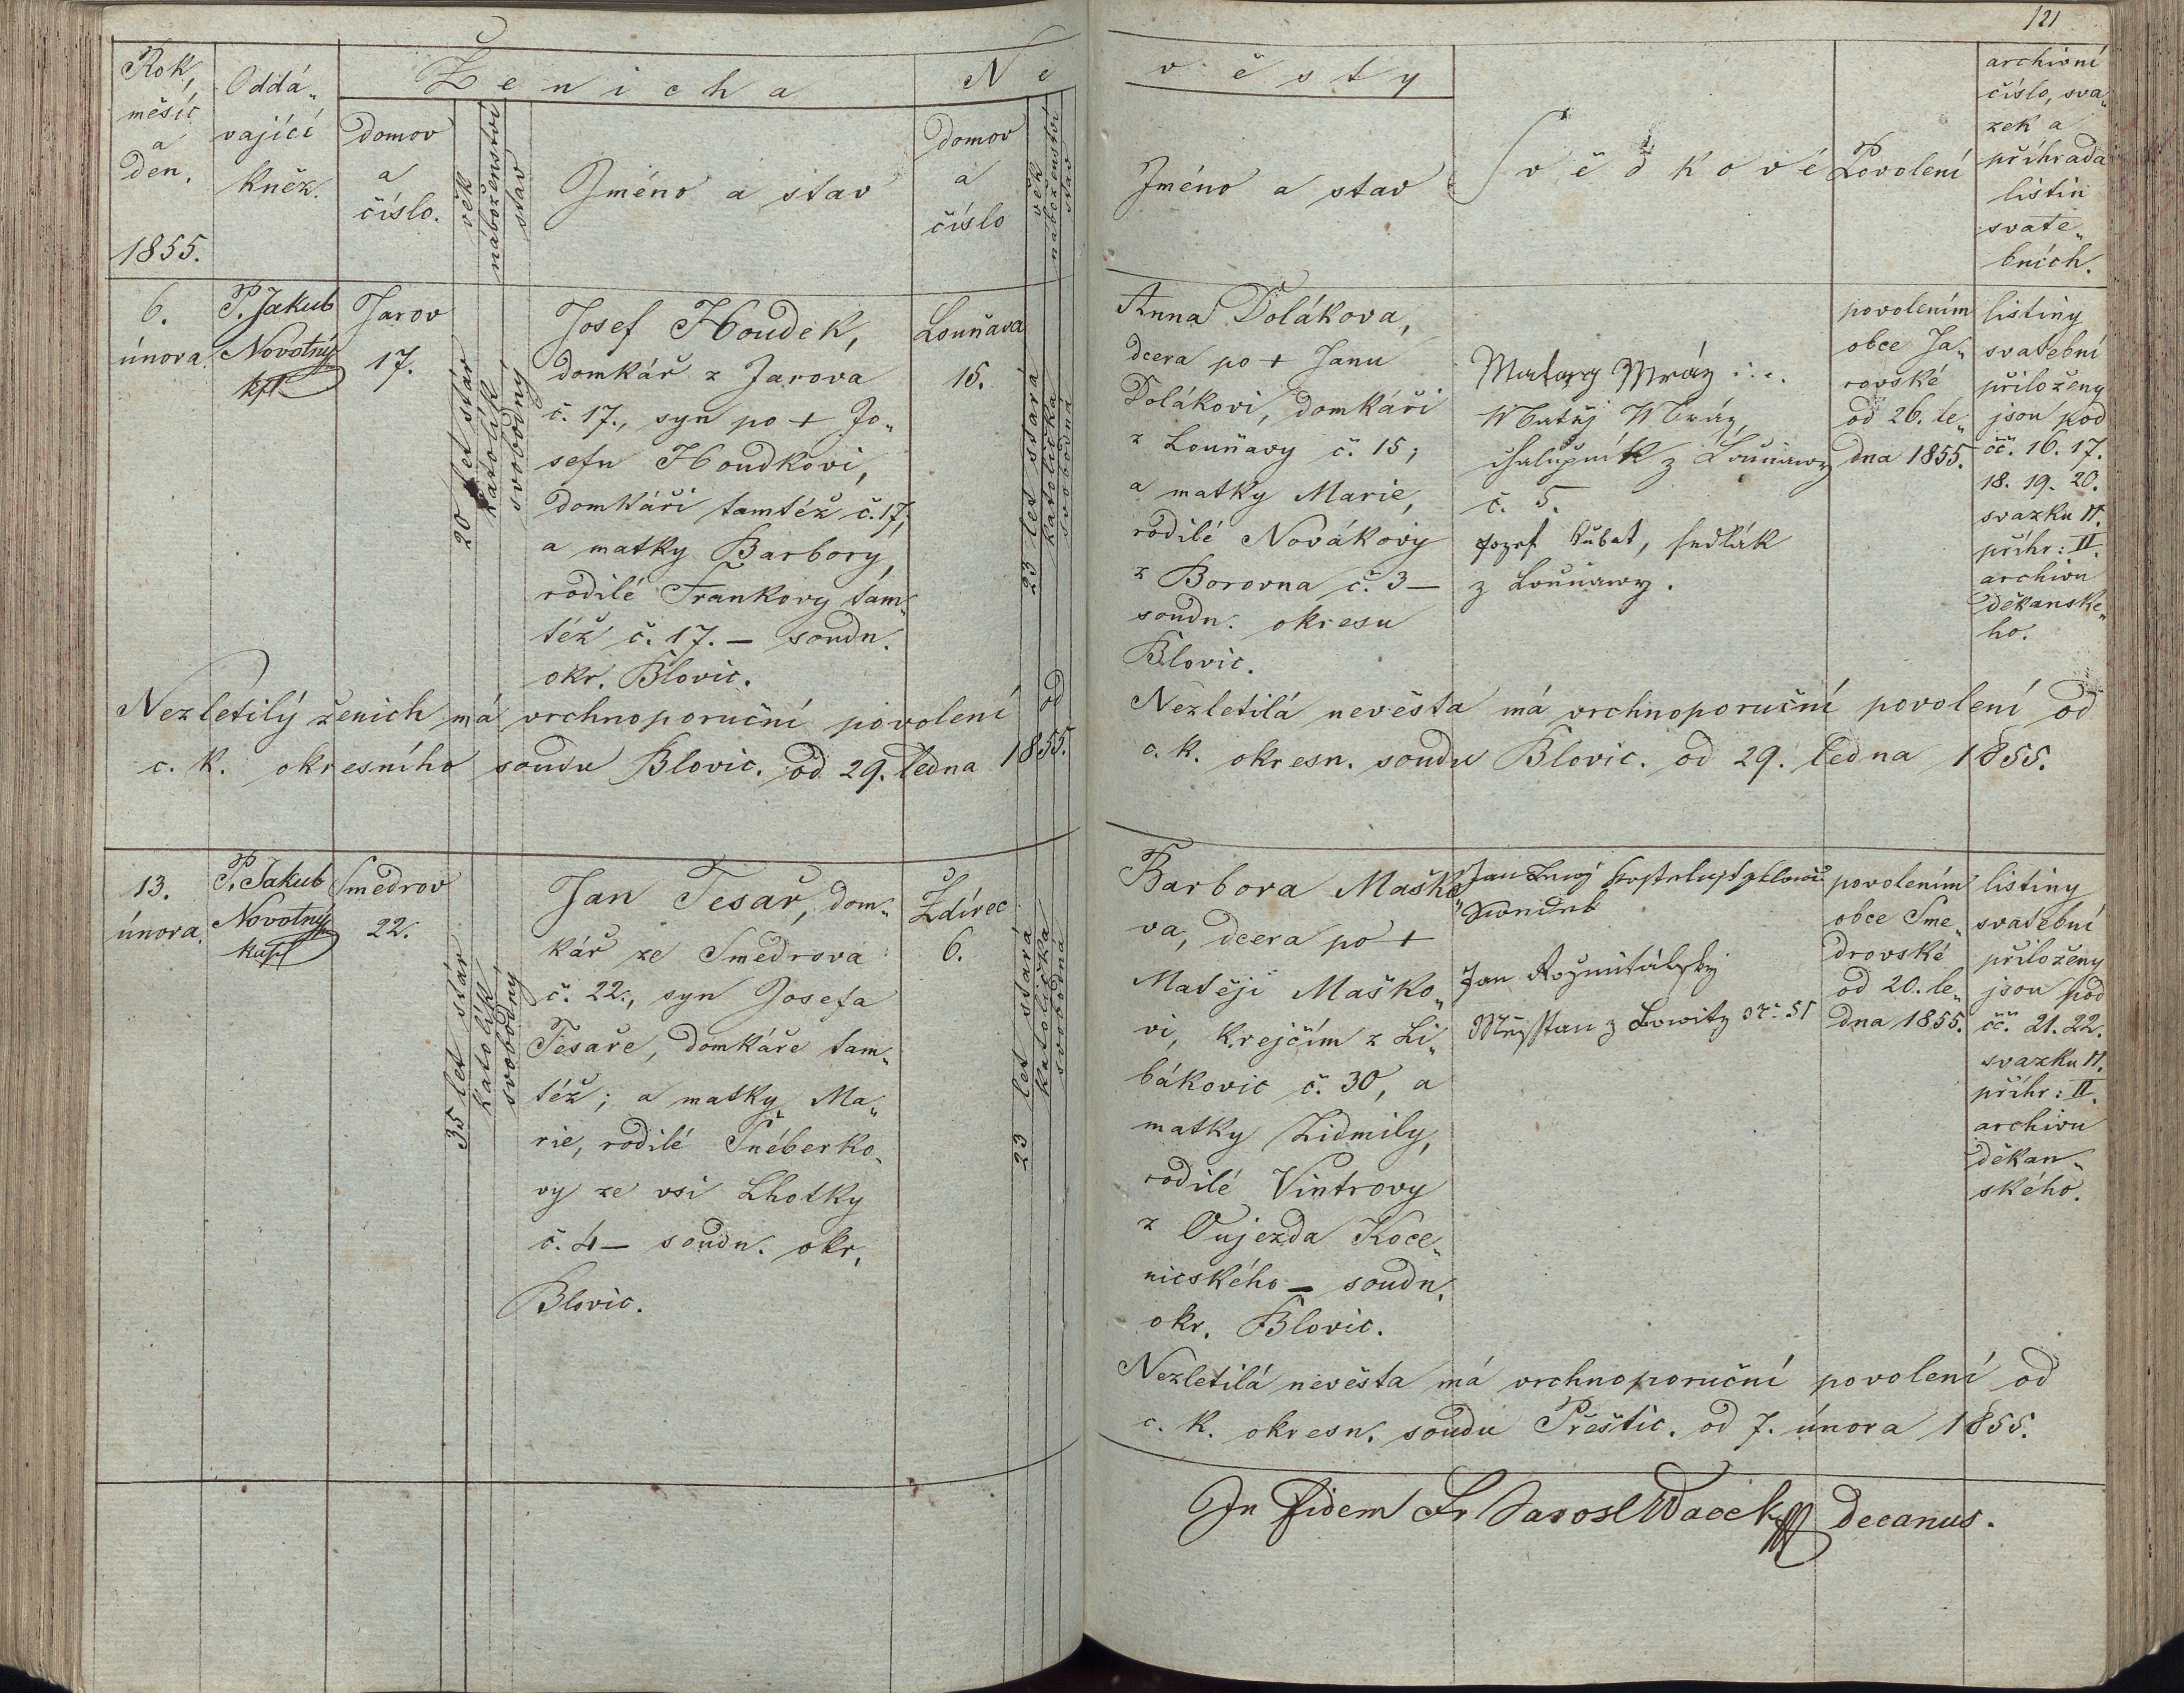 121
Rok,
měsíc
a
den.
1855.
Oddá„
vající
kněz.
Ženicha
domov
a
číslo.
věk
náboženství
stav
Jméno a stav
Ne
domov
a
číslo
věk
náboženství
stav
věsty
Jméno a stav
Svědkové
Povolení
archivní
číslo, sva„
zek a
příhrada
listin
svate„
bních.
6.
února.
P. Jakub
Novotný
kpl
Jarov
17.
20 let stár
katolík
svobodný
Josef Houdek,
domkář z Jarova
č. 17., syn po + Jo„
sefu Houdkovi,
domkáři tamtéž č. 17,
a matky Barbory,
rodilé Frankovy tam„
též č. 17. – soudn.
okr. Blovic.
Louňava
15.
23 let stará
katolička
svobodná
Anna Polákova,
dcera po + Janu
Polákovi, domkáři
z Louňavy č. 15;
a matky Marie,
rodilé Novákovy
z Borovna č. 3 –
soudn. okresu
Blovic.
Mráz
Matěj Mráz,
chalupník z Louňawy
č. 5.
Jozef Kubat, sedlák
z Louňawy.
povolením
obce Ja„
rovské
od 26. le„
dna 1855.
listiny
svatební
přiloženy
jsou pod
čč. 16. 17.
18. 19. 20.
svazku II.
příhr: II.
archivu
děkanské„
ho.
Nezletilý ženich má vrchnoporuční povolení od
c. k. okresního soudu Blovic. od 29. ledna 1855.
Nezletilá nevěsta má vrchnoporuční povolení od
c. k. okresn. soudu Blovic. od 29. ledna 1855.
13.
února.
P. Jakub
Novotný
kapl
Smedrov
22.
35 let stár
katolík
svobodný
Jan Tesař, dom„
kář ze Smedrova
č. 22., syn Josefa
Tesaře, domkáře tam„
též; a matky Ma„
rie, rodilé Šnéberko„
vy ze vsi Lhotky
č. 4 – soudn. okr.
Blovic.
Ždírec
6.
23 let stará
katolička
svobodná
Barbora Maško„
va, dcera po +
Matěji Maško„
vi, krejčím z Li„
bákovic č. 30, a
matky Lidmily,
rodilé Vintrovy
z Oujezda Koce„
nicského – soudn.
okr. Blovic.
Jan
Jan Rožmitálský
Měsstan z
povolením
obce Sme„
drovské
od 20. le„
dna 1855.
listiny
svatební
přiloženy
jsou pod
čč. 21. 22.
svazku II.
příhr: II.
archivu
děkan„
ského.
Nezletilá nevěsta má vrchnoporuční povolení od
c. k. okresn. soudu Přeštic. od 7. února 1855.
In fidem Fr Jarosl Wacek decanus.